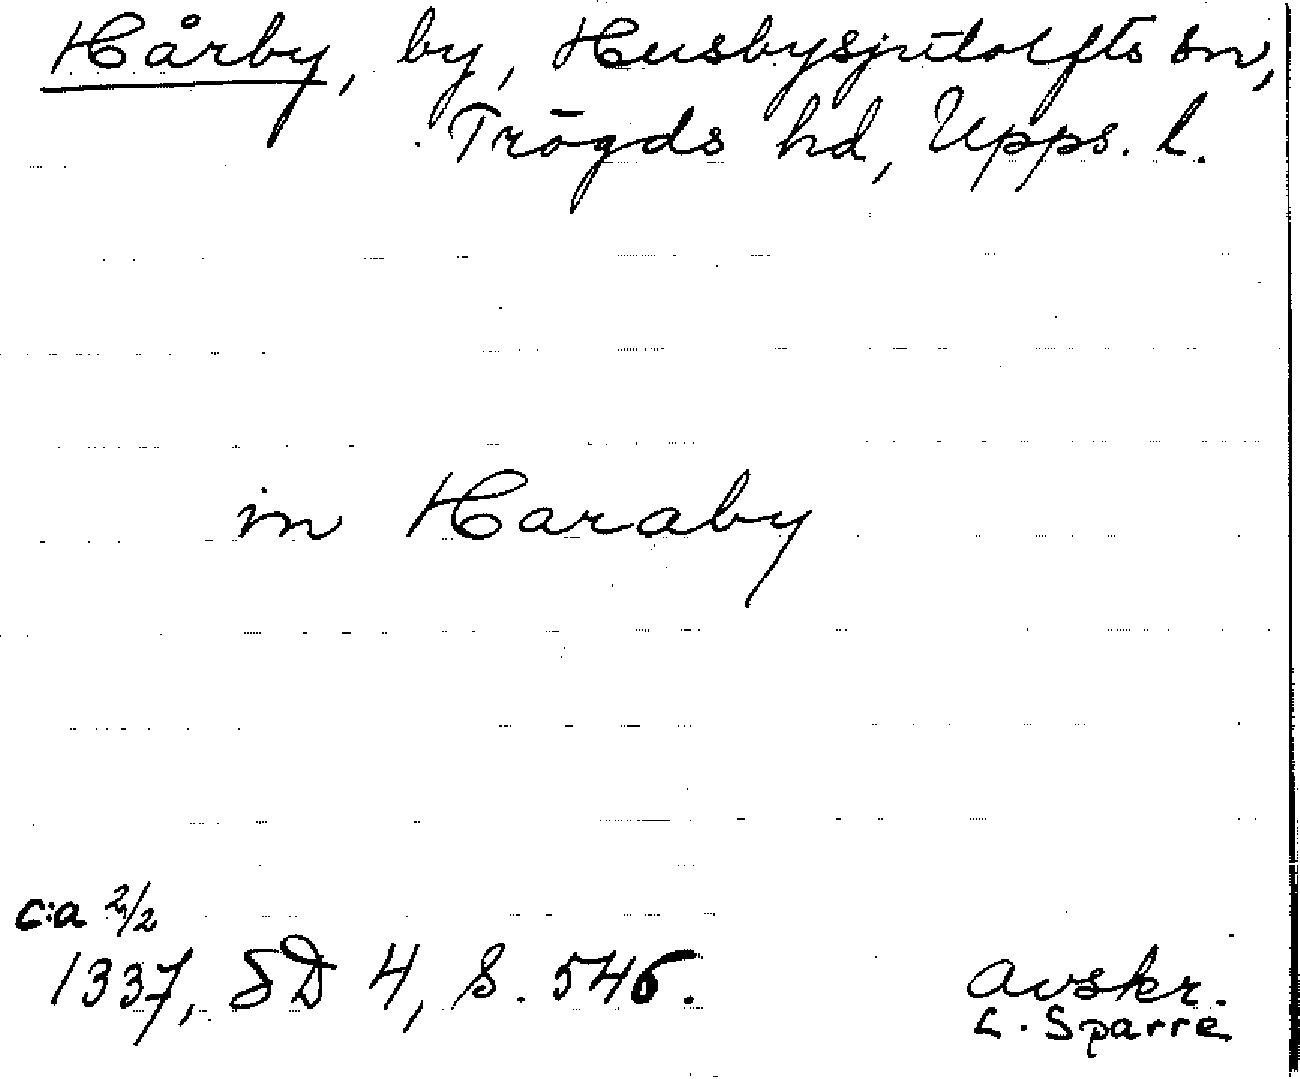 Hårby, by, Husbysjutolfts sn,
Trögds hd, Upps. l.
in Haraby
c:a 2/2
1337, SD 4, s. 546.
Avskr.
L. Sparre